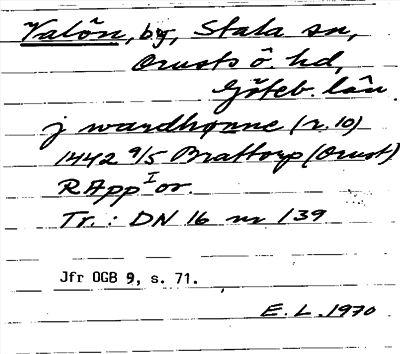 Valön, by, Stala sn,
Orusts ö. hd,
Göteb. län
j wardhønne (r. 10)
1442 9/5 Brattorp (Orust)
RApp I or.
Tr.: DN 16 nr 139
Jfr OGB 9, s. 71.
E. L. 1970